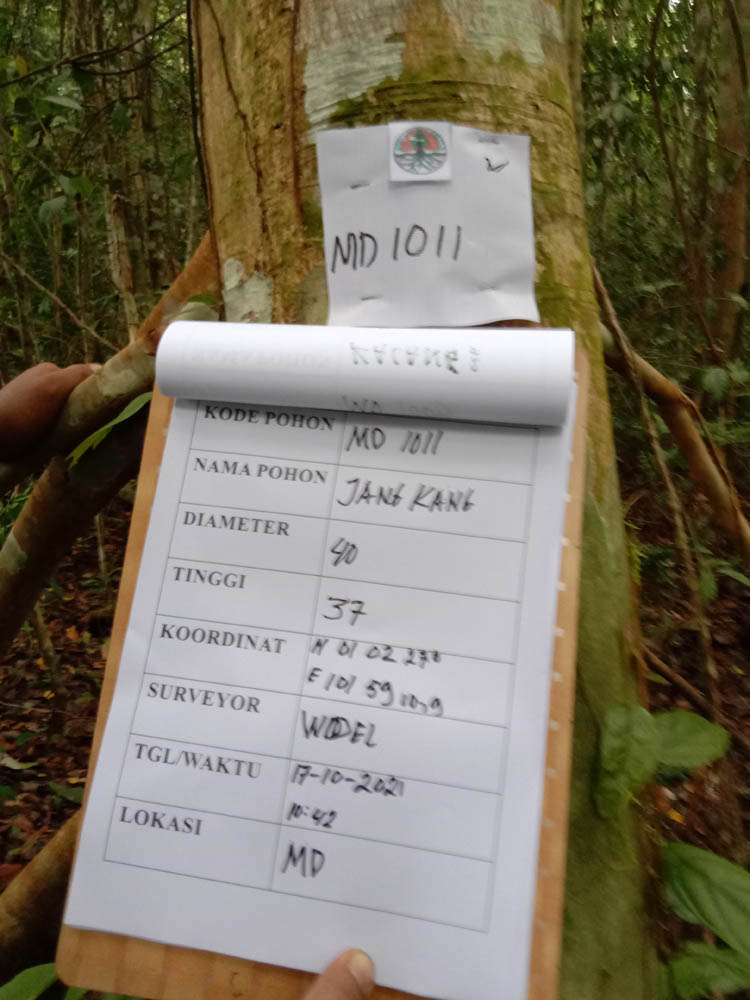 MD 1011
KODE POHON MD 1011
NAMA POHON JANGKANG
DIAMETER 40
TINGGI 37
KOORDINAT N 01 02
E 101 59 10,9
SURVEYOR WODEL
TGL/WAKTU 17-10-2021
10:42
LOKASI MD